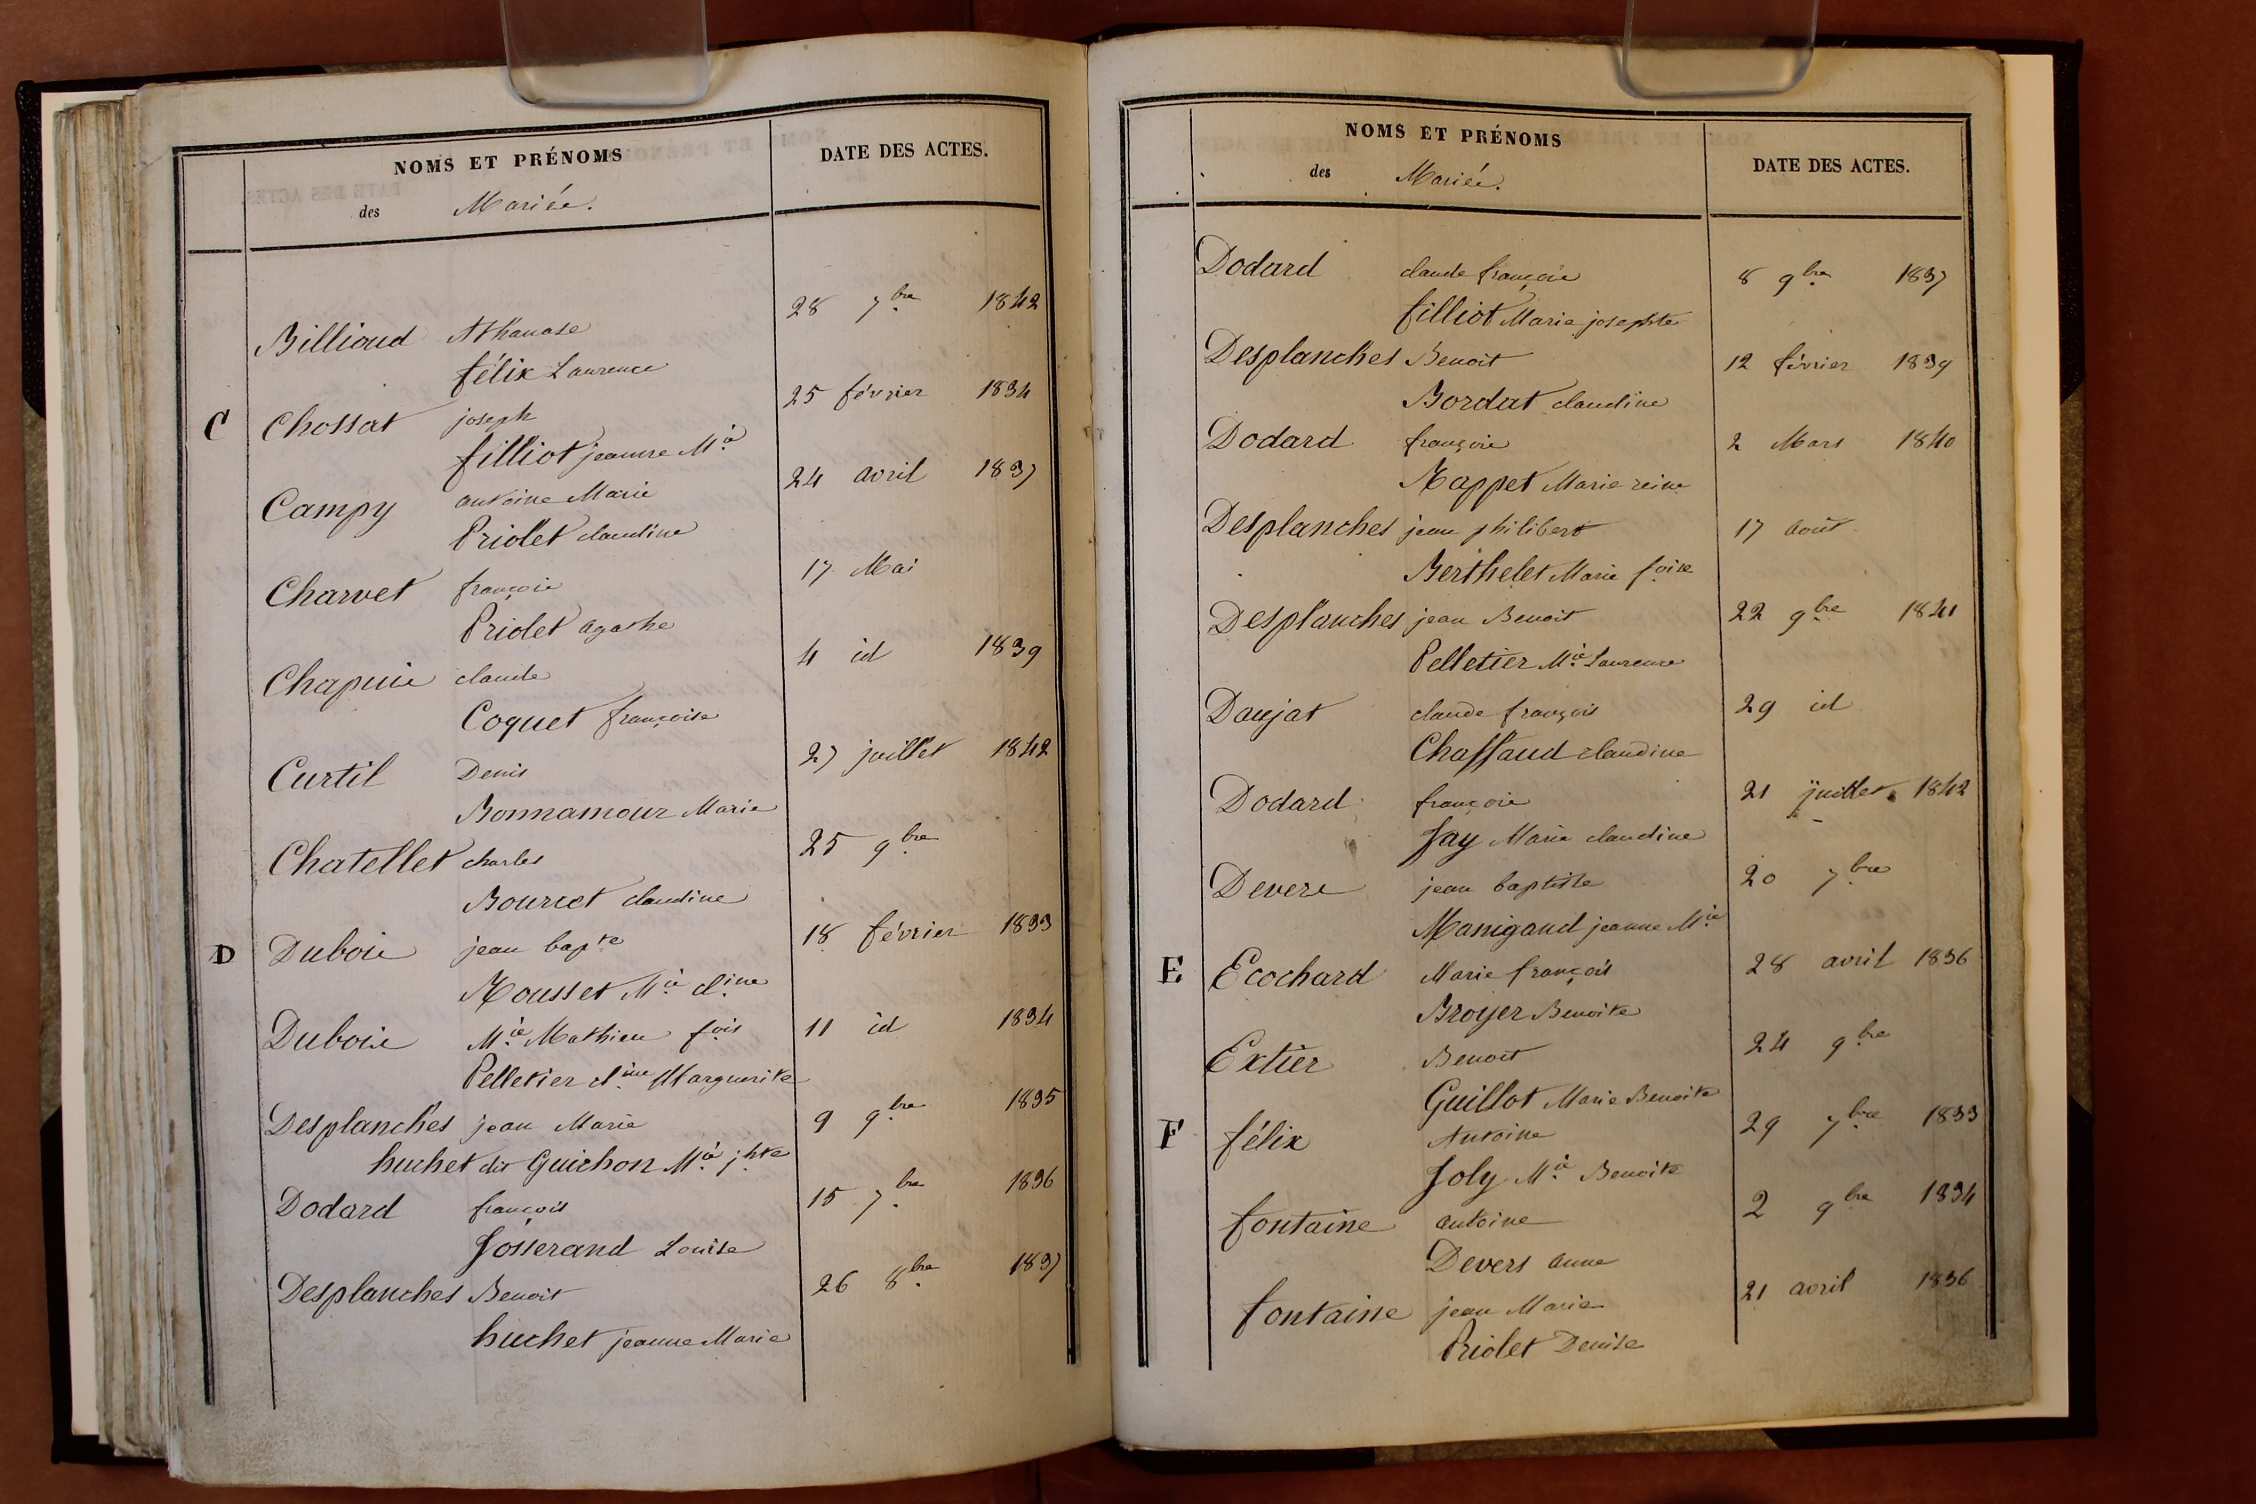 NOMS ET PRÉNOMS DATE DES ACTES.
des Mariés.
Billioud Athanase 28 7bre 1842
félix Laurence
C Chossat joseph 25 février 1834
filliot jeanne Mie
Campy antoine Marie 24 avril 1837
Priolet claudine
Charvet françois 17 Mai
Priolet agathe
Chapuis claude 4 id 1839
Coquet françoise
Curtil Denis 27 juillet 1842
Bonnamour Marie
Chatellet charles 25 9bre
Bourcet claudine
D Dubois jean bapte 18 février 1833
Rousset Mie cl.ine
Dubois Mie Mathieu fois 11 id 1834
Pelletier cl.ine Marguerite
Desplanches jean Marie 9 9bre 1835
huchet dit Guichon Mie jhte
Dodard françois 15 7bre 1836
Josserand Louise
Desplanches Benoit 26 8bre 1837
huchet jeanne Marie
NOMS ET PRÉNOMS DATE DES ACTES.
des Mariés.
Dodard claude françois 8 9bre 1837
filliot Marie josephte
Desplanches Benoit 12 février 1839
Bordat claudine
Dodard françois 2 Mars 1840
Rappet Marie reine
Desplanches jean philibert 17 août
Berthelet Marie foise
Desplanches jean Benoit 22 9bre 1841
Pelletier Mie Laurence
Daujat claude françois 29 id
Chaffaud claudine
Dodard françois 21 juillet 1842
Jay Marie claudine
Devers jean baptiste 20 7bre
Manigand jeanne Mie
E Ecochard Marie françois 28 avril 1836
Broyer Benoite
Extier Benoit 24 9bre
Guillot Marie Benoite
F félix Antoine 29 7bre 1833
Joly Mie Benoite
fontaine antoine 2 9bre 1834
Devers anne
fontaine jean Marie 21 avril 1836
Priolet Denise